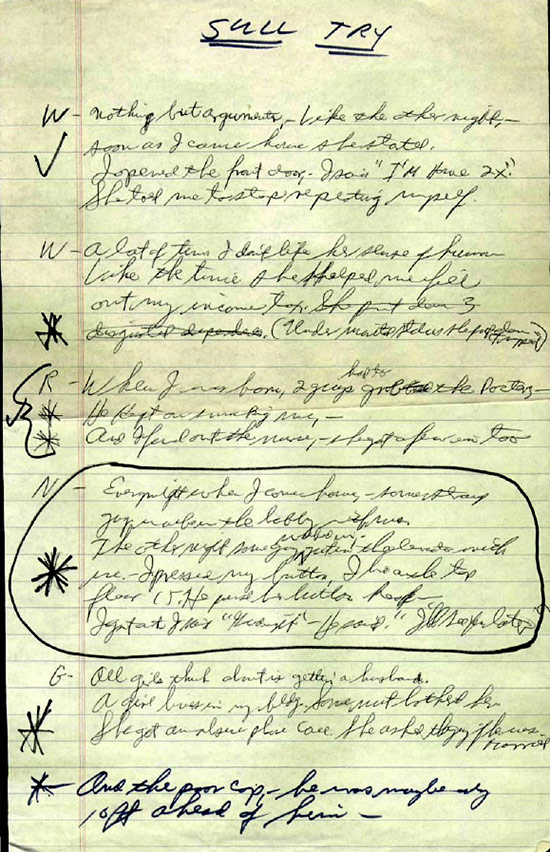 SULL TRY
W- nothing but arguments, - Like the other night, -
soon as I came home she started.
I opened the front door - I said "I'm Home 2X".
She told me to stop repeating myself.
W- A lot of times I don't like her sense of humor
Like the time she helped me fill
out my income tax. She put down 3
(Under
R- When I was born, 2 guys had to the Doctor -
He kept on smacking me, -
And I found out the nurse, - she got a few in too
N- Every night when I come home - some
in the lobby
The other night some guy in the with
me. - I pressed my button, I live on the top
floor 15. He
I got out I said "Goodnight" - He said. "I'll see you later"
G- All girls think about is gettin' a husband.
A girl lives in my bldg. Some nut bothers her.
She got an phone call. She asked the guy if he was
married
And the poor cop, - he was maybe only
10 ft ahead of him -